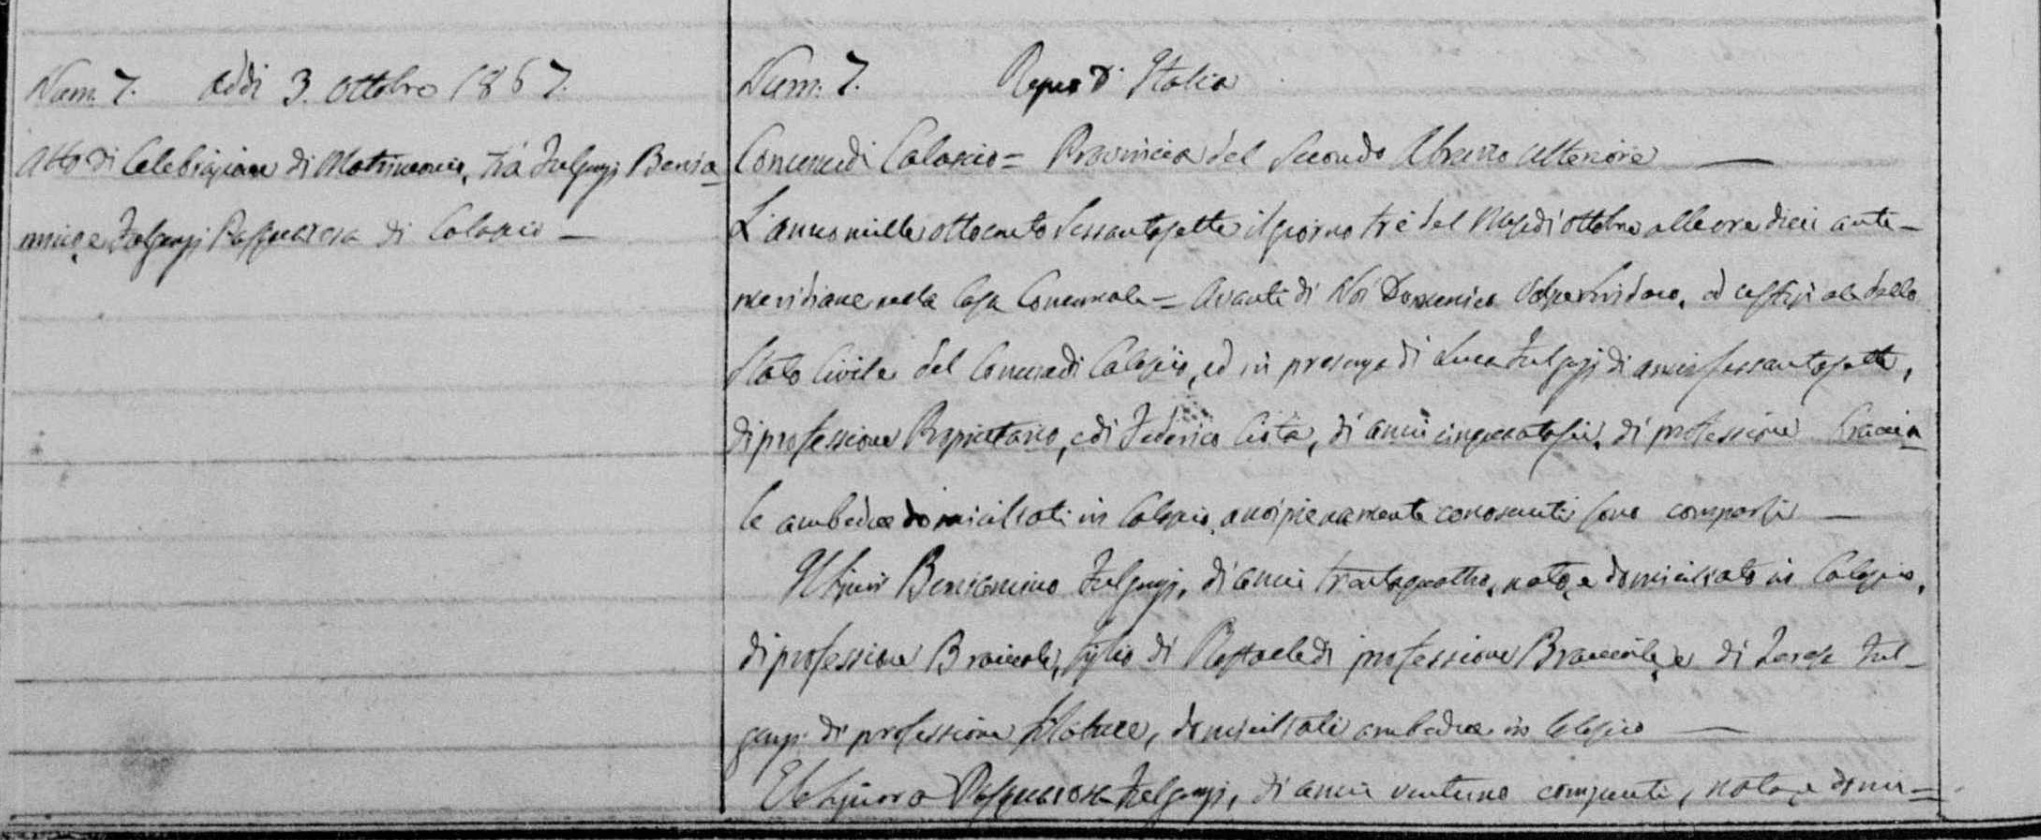 Num. 7. Addi 3. Ottobre 1867.
Atto di Celebrazione di Matrimonio, tra Fulgenzj Benia=
mino, e Fulgenzj Pasquarosa di Calascio —
Num. 7. Regno d'Italia
Comune di Calascio = Provincia del Secondo Abruzzo Ulteriore —
L'anno mille ottocento sessantasette il giorno tre del Mese di Ottobre alle ore dieci ante-
meridiane nella Casa Comunale = Avanti di Noi Domenico Sindaco, ed Uffiziale dello
Stato Civile del Comune di Calascio, ed in presenza di Luca Fulgenzj di anni sessantasette,
di professione Proprietario, e di Federico Cista, di anni cinquantasei, di professione Braccia=
le ambedue domiciliati in Calascio, a noi pienamente conosciuti sono comparsi —
Il Signor Beniamino Fulgenzj, di anni trentaquattro, nato, e domiciliato in Calascio,
di professione Bracciale, figlio di Raffaele di professione Bracciale, e di Teresa Ful-
genzj di professione Filatrice, domiciliati ambedue in Calascio —
E la Signora Pasquarosa Fulgenzj, di anni ventuno compiuti, nata, e domi=